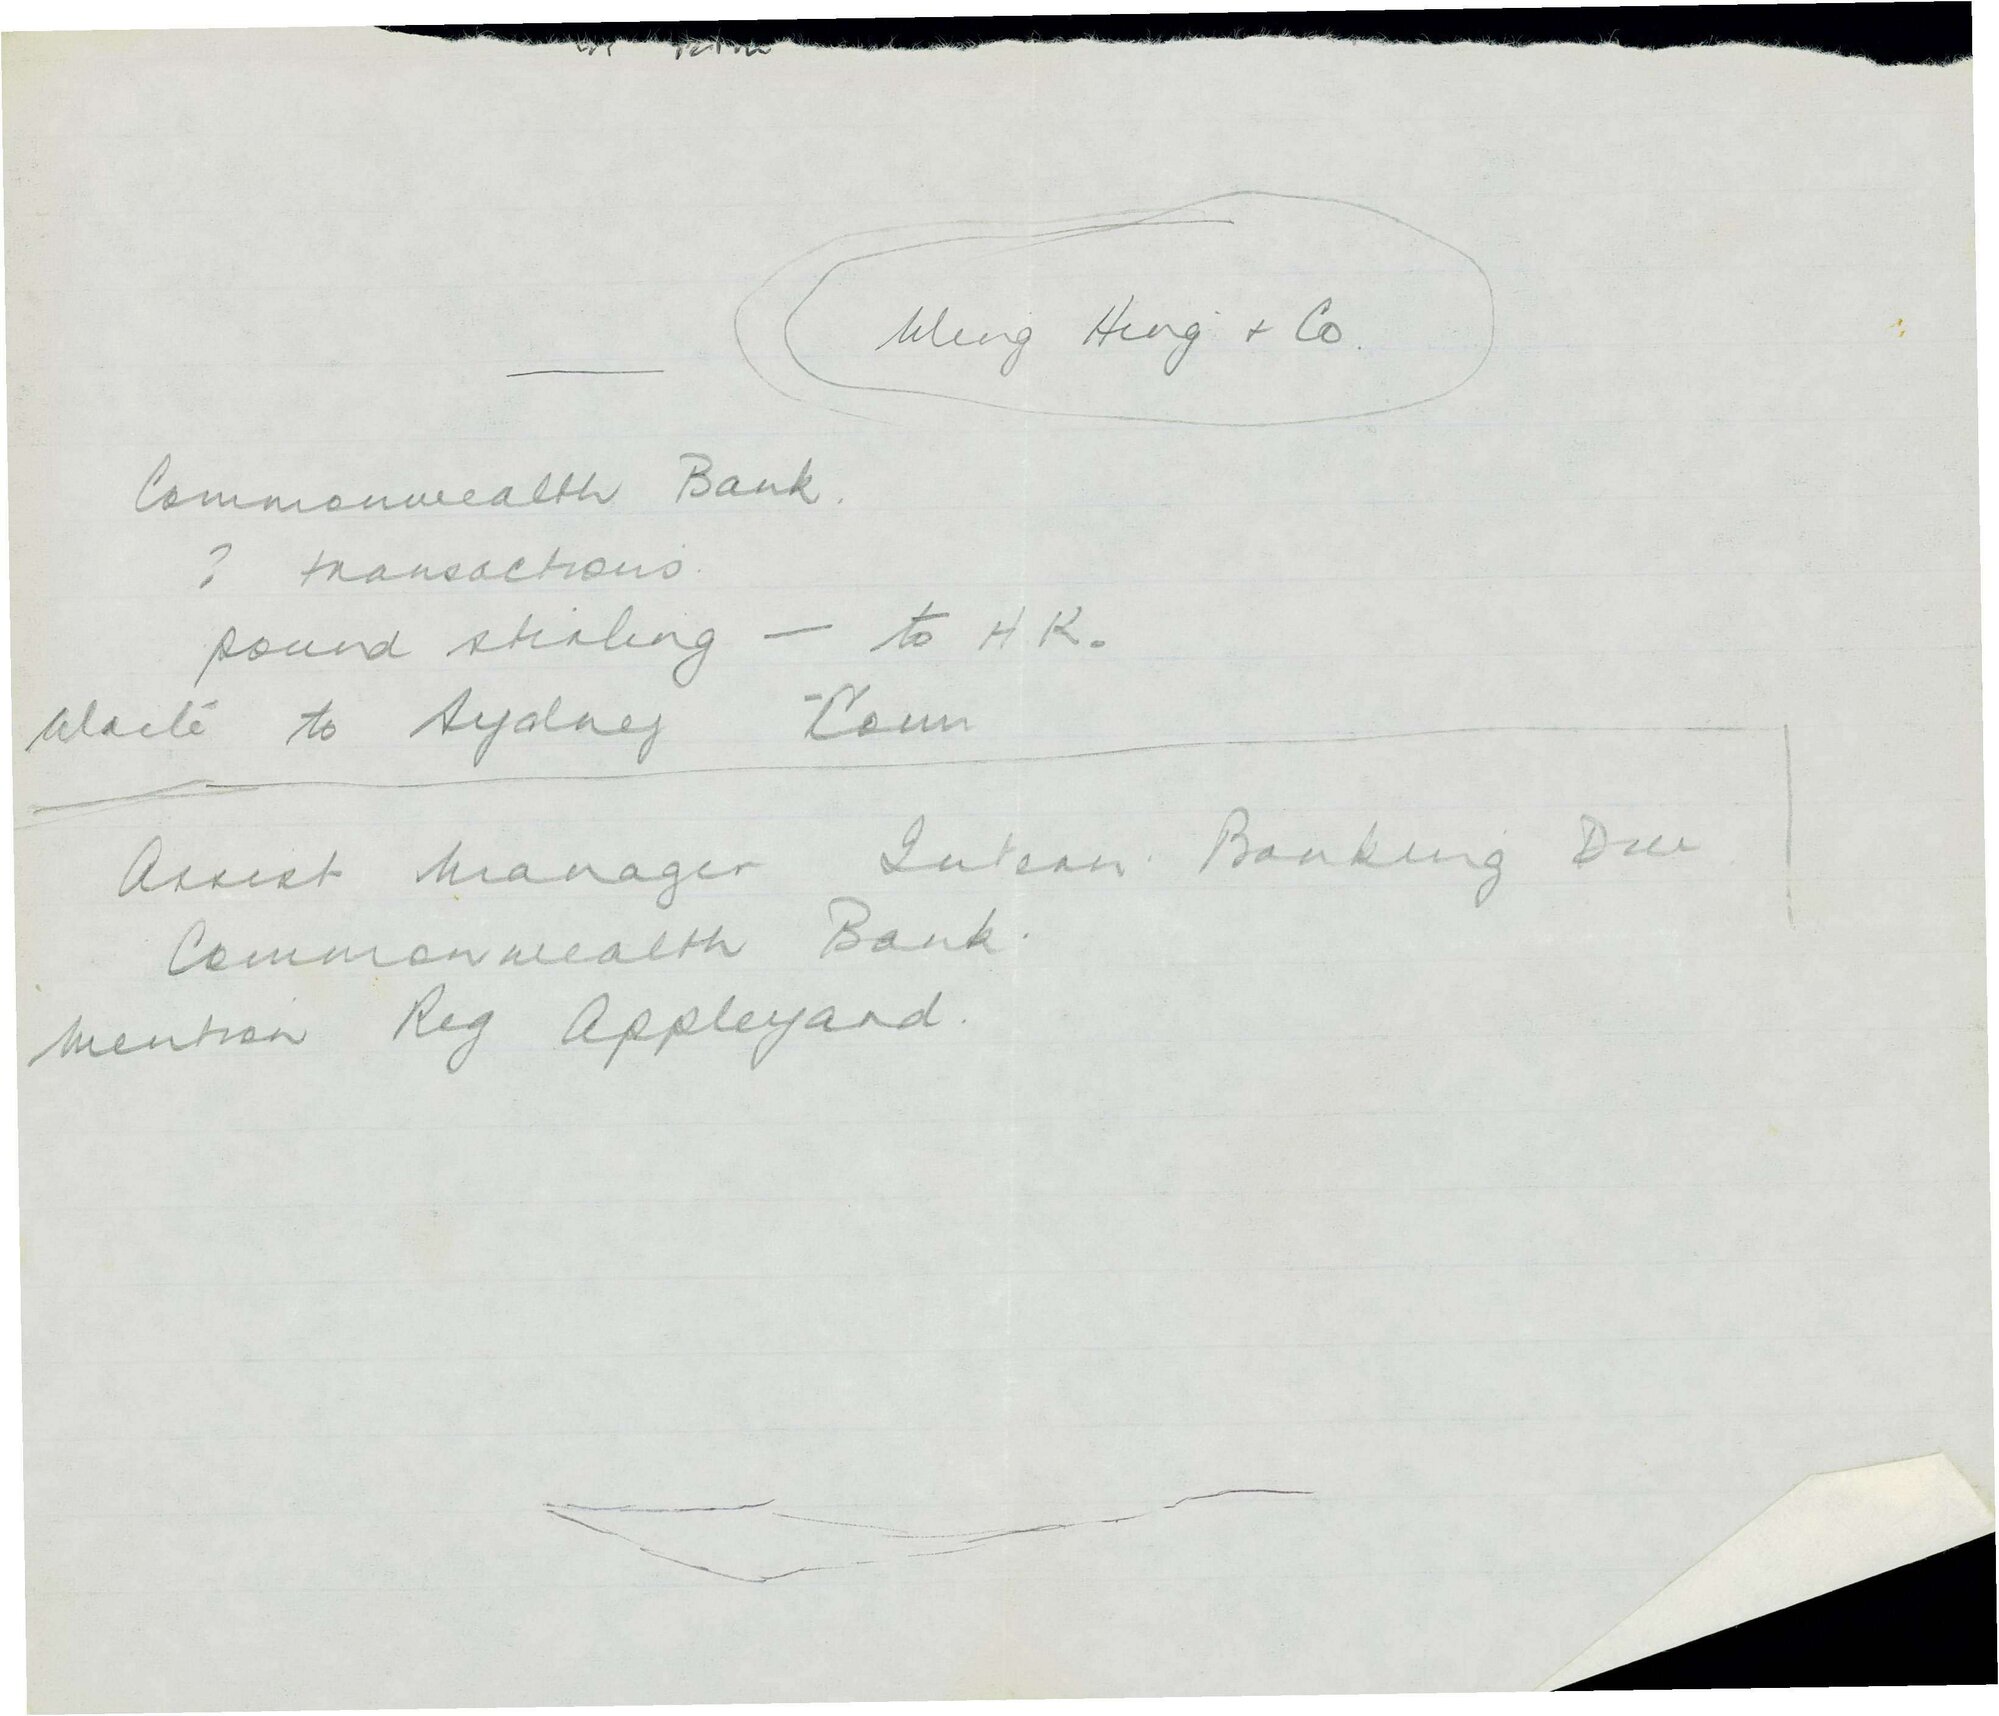 Wing Hing + Co.
Commonwealth Bank.
? transactions.
pound stirling — to H K.
Write to Sydney - Comm
Assist Manager Intern. Banking Div
Commonwealth Bank.
Mention Reg Appleyard.